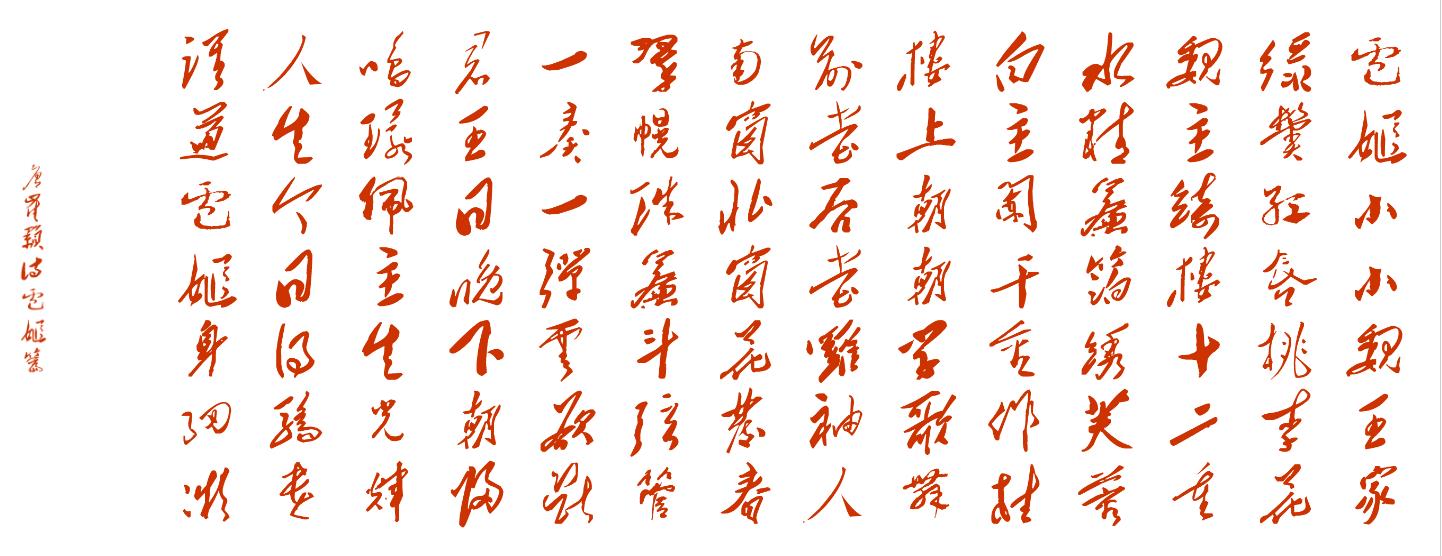 盧姬小小魏王家
綠鬢紅唇桃李花
魏主綺樓十二重
水精簾箔繡芙蓉
白玉闌干金作柱
樓上朝朝學歌舞
前堂后堂羅袖人
南窗北窗花發春
翠幌珠簾斗弦管
一奏一彈雲欲斷
君王日晚下朝歸
鳴環佩玉生光輝
人生今日得驕貴
誰道盧姬身細微
唐崔顥詩盧姬篇